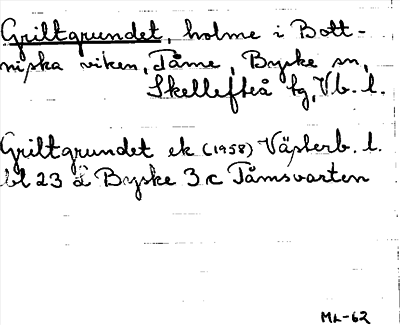 Griltgrundet, holme i Bott-
niska viken, Tåme, Byske sn,
Skellefteå tg, Vb. l.
Griltgrundet ek (1958) Västerb. l.
bl 23 d Byske 3 c Tåmsvarten
ML-62